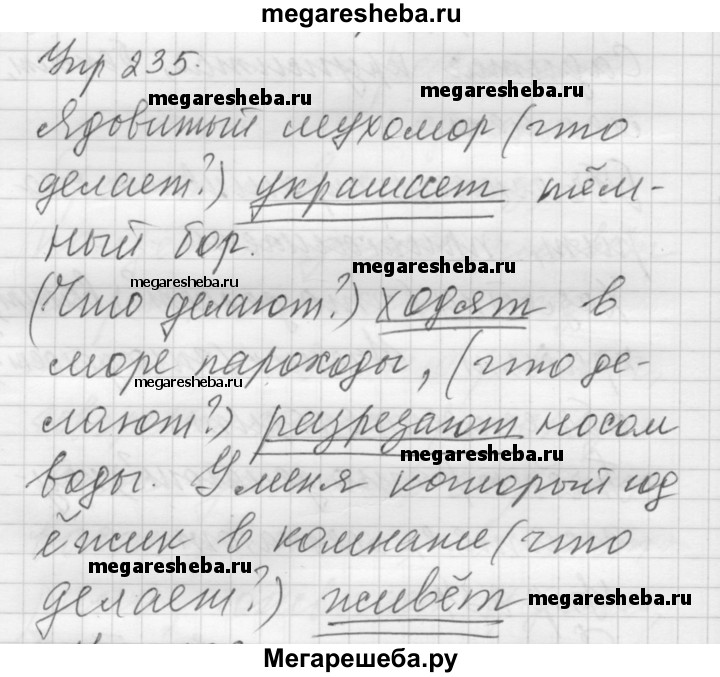 megaresheba.ru
Упр 235.
megaresheba.ru
megaresheba.ru
Ядовитый мухомор (что
делает?) украшает тём-
ный бор.
megaresheba.ru
megaresheba.ru
(Что делают?) ходят в
море пароходы, (что де-
megaresheba.ru
лают?) разрезают носом
megaresheba.ru
воды. У меня который год
ёжик в комнате (что
megaresheba.ru
делает?) живёт
megaresheba.ru
Мегарешеба.ру